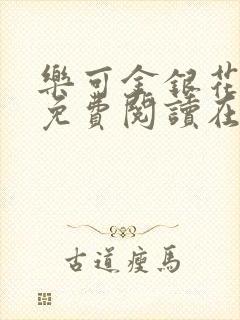 樂可金銀花
免費閱讀在
古道瘦馬